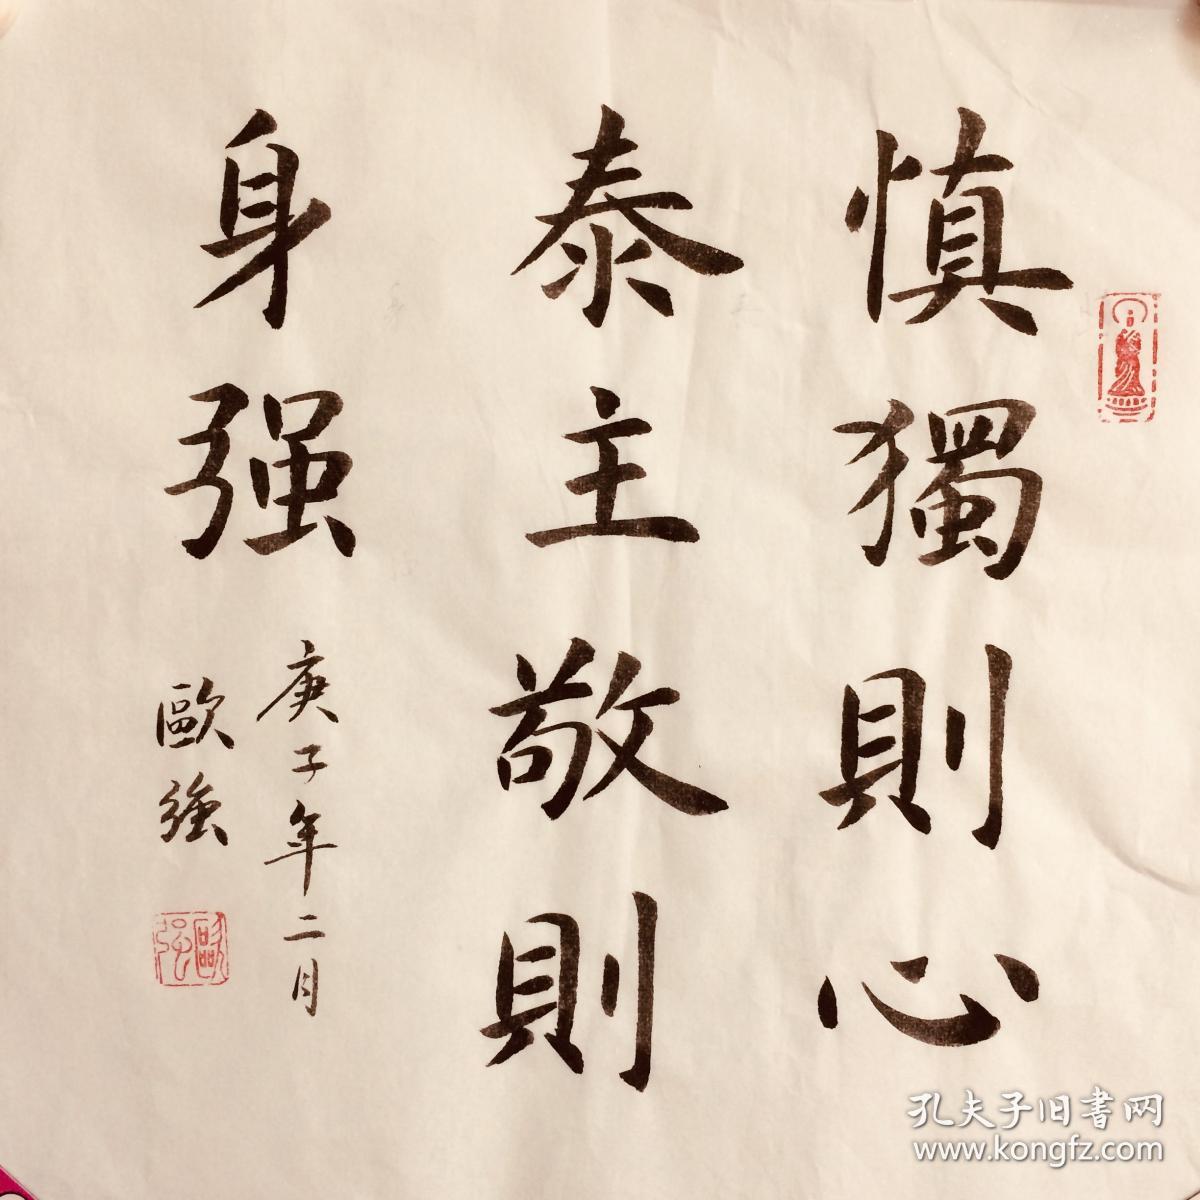 慎獨則心
泰主敬則
身强
庚子年二月
歐強
歐强
孔夫子旧書网
www.kongfz.com